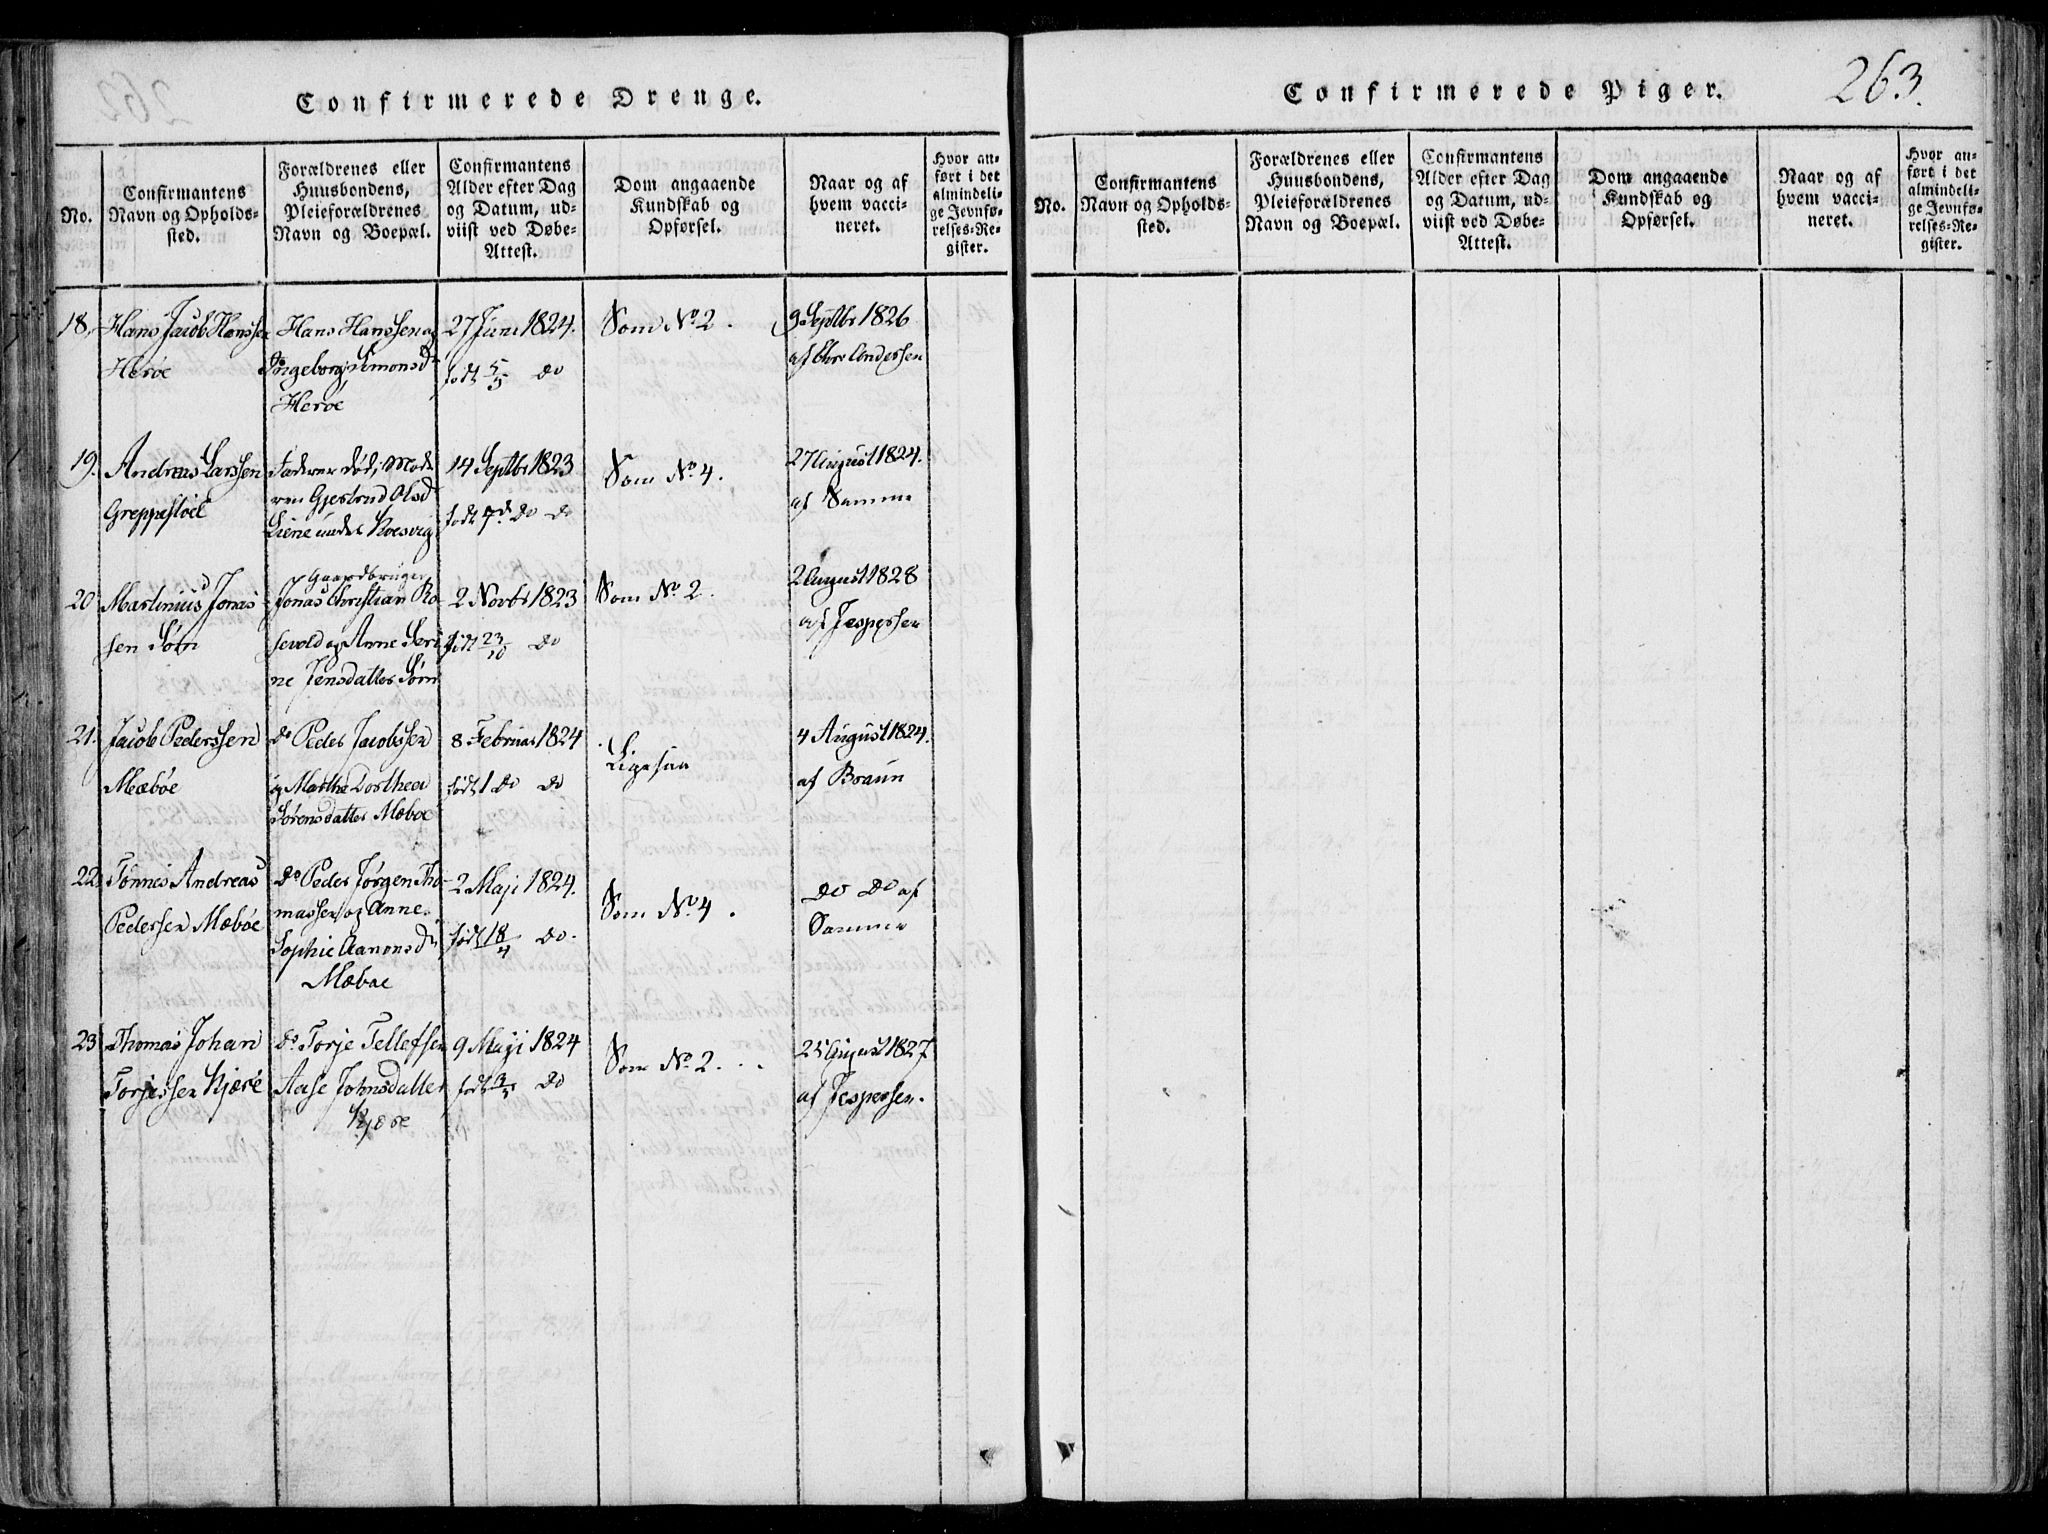 Confirmerede Drenge.
No.
Confirmantens
Navn og Opholds-
sted.
Forældrenes eller
Huusbondens,
Pleieforældrenes
Navn og Boepæl.
Confirmantens
Alder efter Dag
og Datum, ud-
viist ved Døbe-
Attest.
Dom angaaende
Kundskab og
Opførsel.
Naar og af
hvem vacci-
neret.
Hvor an-
ført i det
almindeli-
ge Jevnfø-
relses-Re-
gister.
18.
Hans Jacob Hanssen
Herøe
Hans Hanssen og
Ingeborg Simonsdr
Herøe
27 Juni 1824.
født 5/5 do
Som No 2.
9 Septbr 1826
af Chr Anderssen
19.
Andreas Larssen
Greppestøel
Faderen død, Mode
ren Gjertrud Olsdr
Liene under Koesvig
14 Septbr 1823
født 7d. do do
Som No. 4.
27 August 1824.
af Samme
20
Martinius Jonas
sen Sørn
Gaardbruger
Jonas Christian Ro-
sevold og Anne Seri
ne Jensdatter Sørn
2 Novbr 1823
født 23/10 do
Som No. 2.
2 August 1828
af Jesperssen
21.
Jacob Pederssen
Mæbøe
do Peder Jacobssen
og Marthe Dorthea
Sørensdatter Mæbøe
8 Februar 1824
født 1 do do
Ligesaa
4 August 1824.
af Braun
22.
Tønnes Andreas
Pederssen Mæbøe
do Peder Jørgen Tho-
massen og Anne
Sophie Aanonsdr
Mæbøe
2 Maji 1824.
født 18/4 do.
Som No. 4.
do do af
Samme
23
Thomas Johan
Torjessen Kjære
do Torje Tellefsen
Aase Johnsdatter
Kjære
9 Maji 1824
født 3/5 do
Som No. 2. . .
25 August 1827
af Jesperssen.
Confirmerede Piger.
263.
No.
Confirmantens
Navn og Opholds-
sted.
Forældrenes eller
Huusbondens,
Pleieforældrenes
Navn og Boepæl.
Confirmantens
Alder efter Dag
og Datum, ud-
viist ved Døbe-
Attest.
Dom angaaende
Kundskab og
Opførsel.
Naar og af
hvem vacci-
neret.
Hvor an-
ført i det
almindeli-
ge Jevnfø-
relses-Re-
gister.